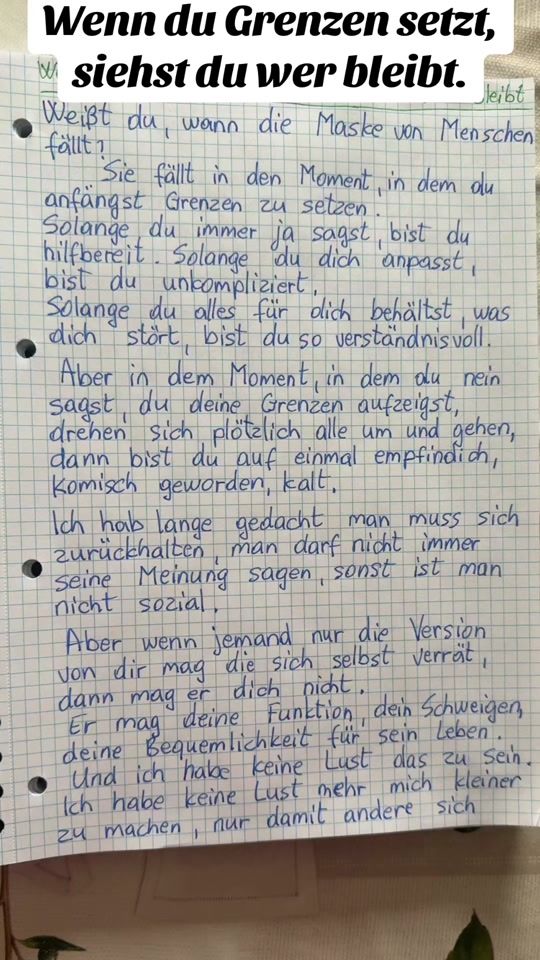 Wenn du Grenzen setzt,
siehst du wer bleibt.
bleibt
Weißt du, wann die Maske von Menschen
fällt?
Sie fällt in den Moment, in dem du
anfängst Grenzen zu setzen.
Solange du immer ja sagst, bist du
hilfbereit. Solange du dich anpasst,
bist du unkompliziert.
Solange du alles für dich behältst, was
dich stört, bist du so verständnisvoll.
Aber in dem Moment, in dem du nein
sagst, du deine Grenzen aufzeigst,
drehen sich plötzlich alle um und gehen,
dann bist du auf einmal empfindich,
komisch geworden, kalt.
Ich hab lange gedacht man muss sich
zurückhalten, man darf nicht immer
seine Meinung sagen, sonst ist man
nicht sozial.
Aber wenn jemand nur die Version
von dir mag die sich selbst verrät,
dann mag er dich nicht.
Er mag deine Funktion, dein Schweigen,
deine Bequemlichkeit für sein Leben.
Und ich habe keine Lust das zu sein.
Ich habe keine Lust mehr mich kleiner
zu machen, nur damit andere sich